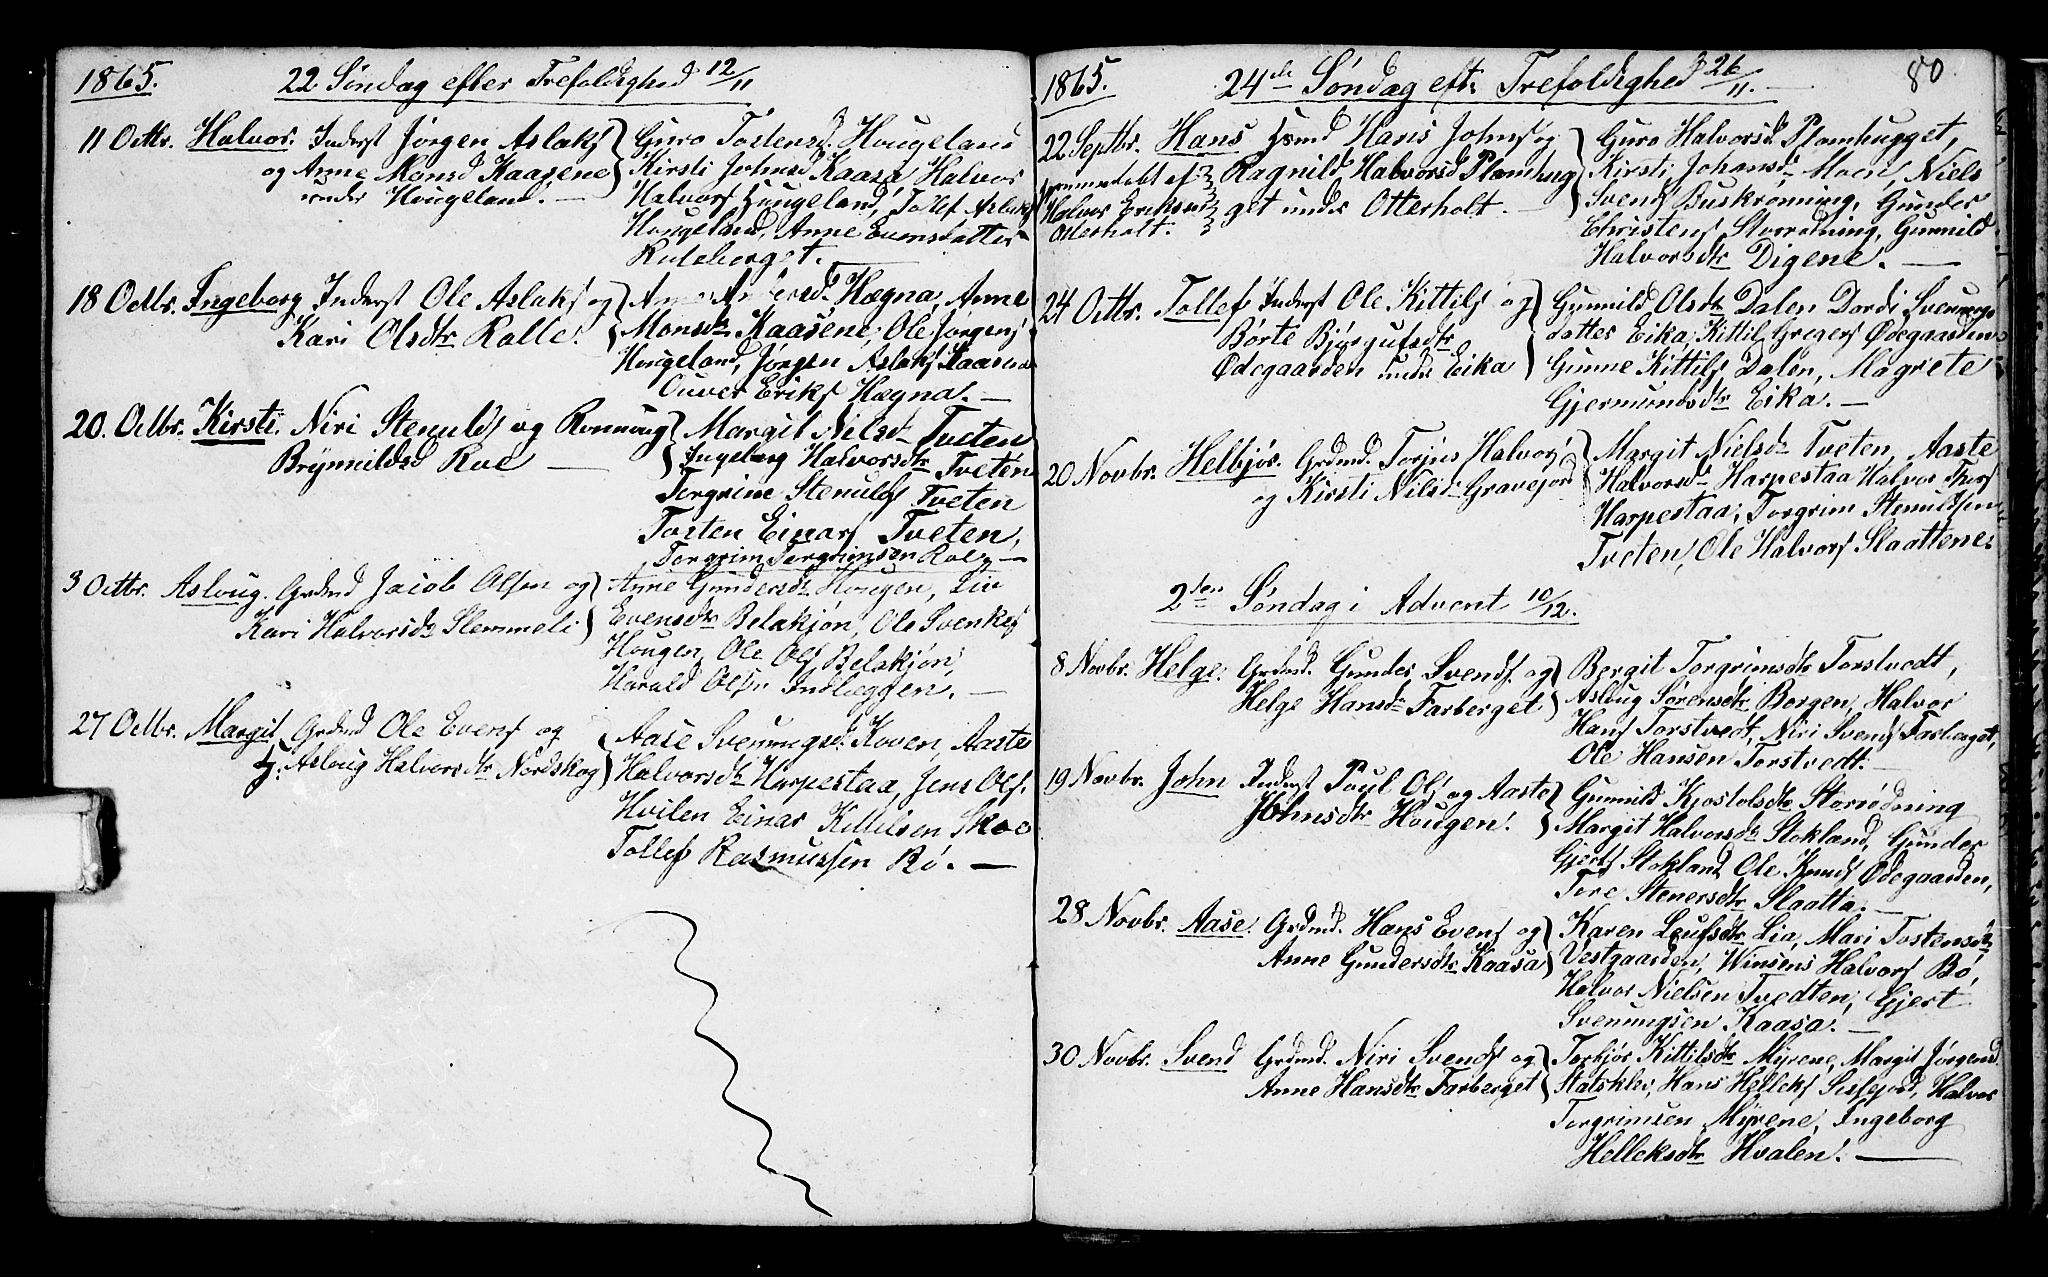 1865. 22 Søndag efter Trefoldighed 12/11
11 Octbr. Halvor. Inderst Jørgen Aslaks
og Anne Monsd Kaasene
under Hougeland. —
Guro Tostensd. Hougeland
Kirsti Johnsd Kaasa, Halvor
Halvors Hougeland, Tollef Aslaks
Hougeland, Anne Evensdatter
Ruleberget.
18 Octbr. Ingeborg Inderst Ole Aslaks og
Kari Olsdtr Rolle.
Hægna, Anne
Monsdtr Kaasene, Ole Jørgens
Hougeland, Jørgen Aslaks Kaasene
Ouver Eriks Hægna. —
20. Octbr. Kirsti. Niri Stenulds og Ronnoug
Brynnildsd Roe —
Margit Nilsd Tveten
Ingeborg Halvorsdtr Tveten
Torgrine Stenulds Tveten
Tosten Einars Tveten,
Torgrim Torgrimsen Roe, —
3 Octbr. Asloug. Grdmd Jacob Olsen og
Kari Halvorsdtr Slemmeli
Anne Gundersdtr Hougen, Liv
Evensdtr Belakjøn, Ole Svenkes
Hougen, Ole Ols Belakjøn,
Harald Olsen Indlæggen. —
27 Octbr. Margit Grdmd Ole Evens og
Asloug Halvorsdtr Nordskog
Aase Svenungsd. Koven, Aaste
Halvorsdtr Harpestaa, Jens Ols.
Hvilen Einar Kittilsen Skoe
Tollef Rasmussen Bø. —
80.
1865. 24de Søndag eft. Trefoldighed 26/11. —
22 Septbr. Hans Hsmd Hans Johns og
hjemmedøbt af Ragnild Halvorsd Plomhug
Halvor Eriksen get under Otterholt. —
Oterholt.
Guro Halvorsd. Plomhugget,
Kirsti Johansd. Moen, Niels
Svends Buskrønning, Gunder
Christens Storrødning, Gunnild
Halvorsdtr Digene. —
24 Octbr. Tollef Inderst Ole Kittils og
Børte Bjørgufsdtr
Ødegaarden under Eika
Gunnild Olsdtr Dalen Dordi Svenungs
datter Eika, Kittil Gregers Ødegaarden
Gunne Kittils Dalen, Magrete
Gjermundsdtr Eika. —
20 Novbr. Helbjør. Grdmd. Torjus Halvors
og Kirsti Nilsd Gravejord
Margit Nielsdtr Tveten, Aaste
Halvorsdtr Harpestaa Halvor Thors
Harpestaa, Torgrim Stenuldsen
Tveten, Ole Halvors Slaattene.
2den Søndag i Advent 10/12.
8 Novbr. Helge. Grdmd. Gunder Svends og
Helge Hansdtr Farberget
Bergit Torgrimsdtr Torstvedt,
Asloug Sørensdtr Borgen, Halvor
Hans Torstvedt, Niri Svends Farberget,
Ole Hansen Torstvedt. —
19 Novbr. John Inderst Poul Ols og Aaste
Johnsdtr Hougen.
Gunnild Kjostolsdtr Storrødning
Margit Halvorsdtr Stokland, Gunder
Gjerts Stokland Ole Knuds Ødegaarden,
Tore Stenersdtr Slaatta. —
28 Novbr. Aase. Grdmd. Hans Evens og
Anne Gundersdtr Kaasa
Karen Leufsdtr Lia, Mari Tostensdtr
Vestgaarden, Winsens Halvors Bø,
Halvor Nielsen Tvedten, Gjert
Svenungsen Kaasa. —
30 Novbr. Svend Grdmd. Niri Svends og
Anne Hansdtr Farberget
Torbjør Kittilsdtr Myrene, Margit Jørgensd
Statsklev, Hans Helleks Sisjord, Halvor
Torgrimsen Myrene, Ingeborg
Helleksdtr Hvalen. —